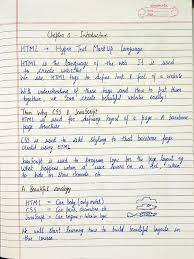 Chapter 0 - Introduction
HTML → Hyper Text Markup Language
HTML is the language of the web. It is used
to create websites
We use HTML tags to define look & feel of a website
With understanding of these tags and how to put them
together, we can create beautiful website easily!
Then Why CSS & JavaScript
HTML is used for defining layout of a page - A barebone
page structure
CSS is used to add styling to that barebone page
created using HTML
JavaScript is used to program logic for the page layout
what happens when a user hovers on a text, when
to hide or show elements etc.
A Beautiful analogy
HTML = Car body (only metal)
CSS = Car paint, decoration etc.
JavaScript = Car engine + interior logic
We will start learning how to build beautiful layouts in
this course